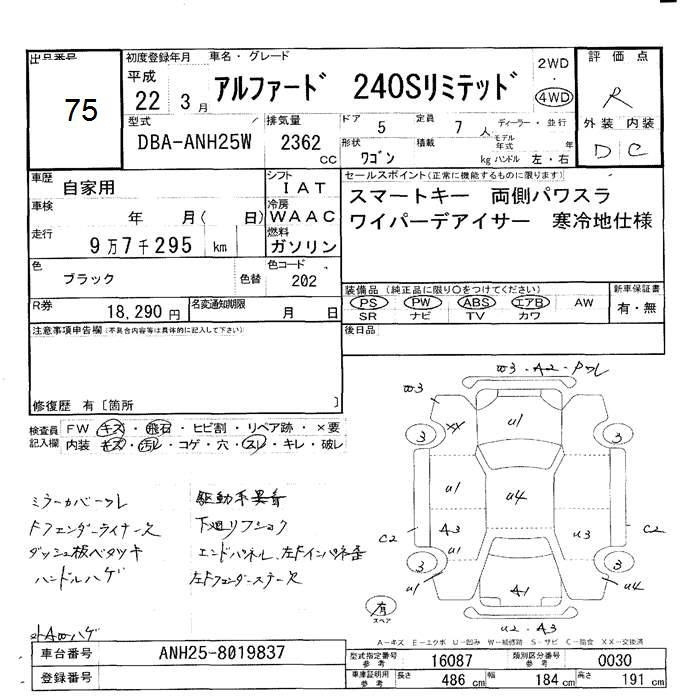 出品番号 初度登録年月 車名・グレード 評価点
75
平成 22 3月 アルファード 240Sリミテッド 2WD ・ 4WD R
型式 排気量 ドア 定員 ディーラー・並行 外装 内装
DBA-ANH25W 2362 cc 5 7人 モデル年式 年 D C
形状 ワゴン 積載 kg ハンドル 左・右
車歴 自家用 シフト IAT セールスポイント(正常に機能するものに限ります)
車検 年 月( 日) 冷房 WAAC スマートキー 両側パワスラ
走行 9万7千295 km 燃料 ガソリン ワイパーデアイサー 寒冷地仕様
色 ブラック 色替 色コード 202
装備品(純正品に限り○をつけてください) 新車保証書
PS PW ABS エアB AW 有・無
SR ナビ TV カワ
R券 18,290円 名変通知期限 月 日 後日品
注意事項申告欄(不具合内容等は具体的に記入して下さい)
修復歴 有[箇所 ]
検査員記入欄 FW キズ・飛石・ヒビ割・リペア跡・×要
内装 キズ・汚レ・コゲ・穴・スレ・キレ・破レ
W3・A2・ワレ
W3
U1
XX
3 3
U1 U4
A3 U3
C2 C2
U1
3 3
U1 A1 U4
U2・A3
ミラーカバーワレ
Fフェンダーライナーヌケ
ダッシュ板ベタツキ
ハンドルハゲ
駆動系異音
エンドパネル、左Fインパネ歪
有
スペア
A-キズ E-エクボ U-凹み W-補修跡 S-サビ C-腐食 XX-交換済
車台番号 ANH25-8019837
型式指定番号 参考 16087 類別区分番号 参考 0030
登録番号
車庫証明用 参考 長さ 486 cm 幅 184 cm 高さ 191 cm